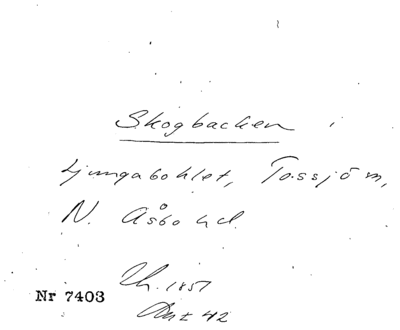 Skogbacken i
Ljungabohlet, Tossjö sn,
N. Åsbo hd.
Nr 7403
Uh. 1851
Akt 42